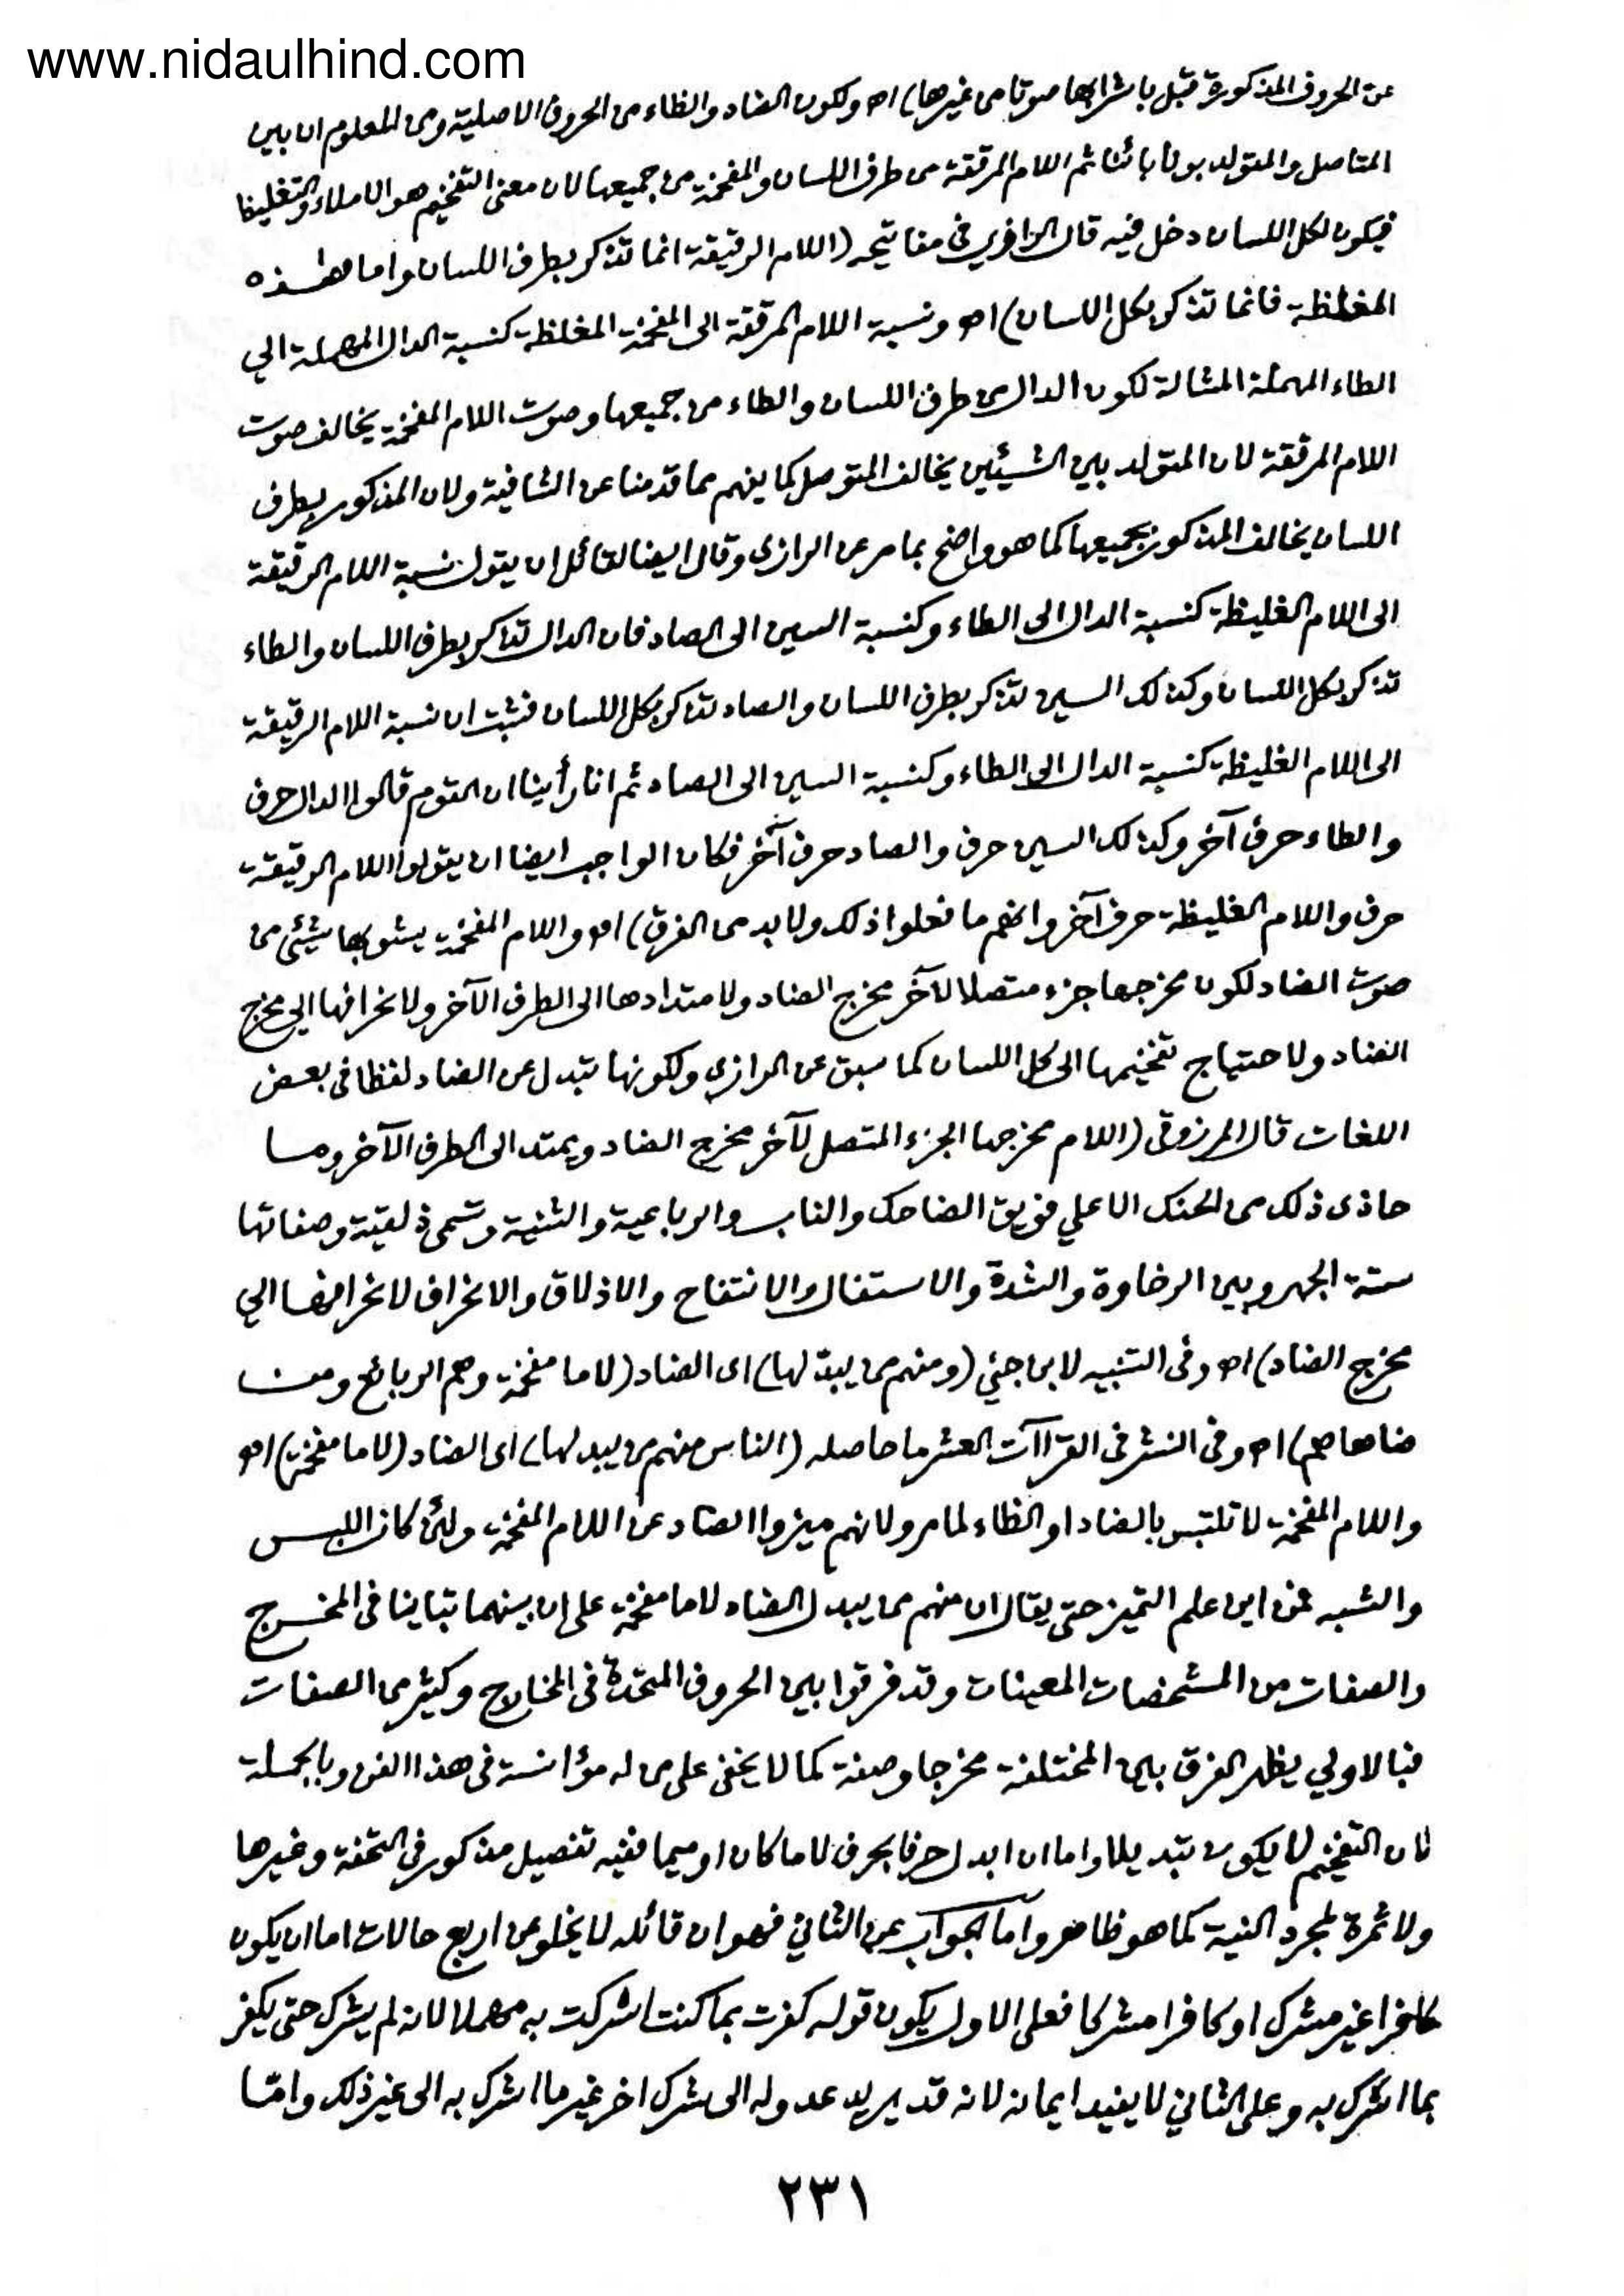 www.nidaulhind.com
عن الحروف المذكورة قبل باشرابها صوتا من غيرها) اھ ولكون الضاد والظاء من الحروف الاصلية ومن المعلوم ان بين
المتاصل والمتولد بونا بائنا ثم اللام المرققة من طرف اللسان والمفخمة من جميعها لان معنى التفخيم هو الاملاء والتغليظ
فيكون لكل اللسان دخل فيه قال الرازي في مفاتيحه (اللام الرقيقة انما تذكر بطرف اللسان واما هذه
المغلظة فانما تذكر بكل اللسان) اھ ونسبة اللام المرققة الى المفخمة المغلظة كنسبة الدال المهملة الي
الطاء المهملة المشالة لكون الدال من طرف اللسان والطاء من جميعها وصوت اللام المفخمة يخالف صوت
اللام المرققة لان المتولد بين الشيئين يخالف المتوصل كما يفهم مما قدمنا عن الشافية ولان المذكور بطرف
اللسان يخالف المذكور بجميعها كما هو واضح بما مر عن الرازي وقال ايضا لقائل ان يقول نسبة اللام الرقيقة
الى اللام الغليظة كنسبة الدال الى الطاء وكنسبة السين الى الصاد فان الدال تذكر بطرف اللسان والطاء
تذكر بكل اللسان وكذلك السين تذكر بطرف اللسان والصاد تذكر بكل اللسان فثبت ان نسبة اللام الرقيقة
الى اللام الغليظة كنسبة الدال الى الطاء وكنسبة السين الى الصاد ثم انا رأينا ان القوم قالوا الدال حرف
والطاء حرف آخر وكذلك السين حرف والصاد حرف آخر فكان الواجب ايضا ان يقولوا اللام الرقيقة
حرف واللام الغليظة حرف آخر وانهم ما فعلوا ذلك ولا بد من الفرق) اھ واللام المفخمة يشوبها شيئ من
صوت الضاد لكون مخرجها جزء متصلا لآخر مخرج الضاد ولامتدادها الى الطرف الآخر ولانحرافها الي مخرج
الضاد ولاحتياج تفخيمها الى كل اللسان كما سبق عن الرازي ولكونها تبدل عن الضاد لفظا في بعض
اللغات قال المرزوقى (اللام مخرجها الجزء المتصل لآخر مخرج الضاد ويمتد الى الطرف الآخر وما
حاذى ذلك من الحنك الاعلي فويق الضاحك والناب والرباعية والثنية وتسمى ذلقية وصفاتها
ستة الجهر وبين الرخاوة والشدة والاستفال والانتفاح والاذلاق والانحراف لانحرافها الي
مخرج الضاد) اھ وفى التنبيه لابن جني (ومنهم من يبدلها) اى الضاد (لاما مفخمة وهم الربائع ومن
ضاهاهم) اھ وفى النشر فى القراآت العشر ما حاصله (الناس منهم من يبدلها) اى الضاد (لاما مفخمة) اھ
واللام المفخمة لا تلتبس بالضاد او الظاء لما مر ولانهم ميزوا الضاد عن اللام المفخمة ولئن كان اللبس
والشبه فمن اين علم التميز حتى يقال ان منهم من يبدل الضاد لاما مفخمة على ان بينهما تباينا فى المخرج
والصفات من المشخصات المعينات وقد فرقوا بين الحروف المتحدة فى المخارج وكثير من الصفات
فبالاولي يظهر الفرق بين المختلفة مخرجا وصفة كما لا يخفى على من له مؤانسة فى هذا الفن وبالجملة
فان التفخيم لا يكون تبديلا واما ان ابدل حرفا بحرف لاما كان او ميما ففيه تفصيل مذكور فى التحفة وغيرها
ولا ثمرة لمجرد النية كما هو ظاهر وأما الجواب عن الثاني فهو ان قائله لا يخلو عن اربع حالات اما ان يكون
كافرا غير مشرك او كافرا مشركا فعلى الاول يكون قوله كفرت بما كنت اشركت به مهملا لانه لم يشرك حتى يكفر
بما اشرك به وعلى الثاني لا يفيد ايمانه لانه قد يريد عدوله الى شرك اخر غير ما اشرك به الى غير ذلك وامّا
٢٣١